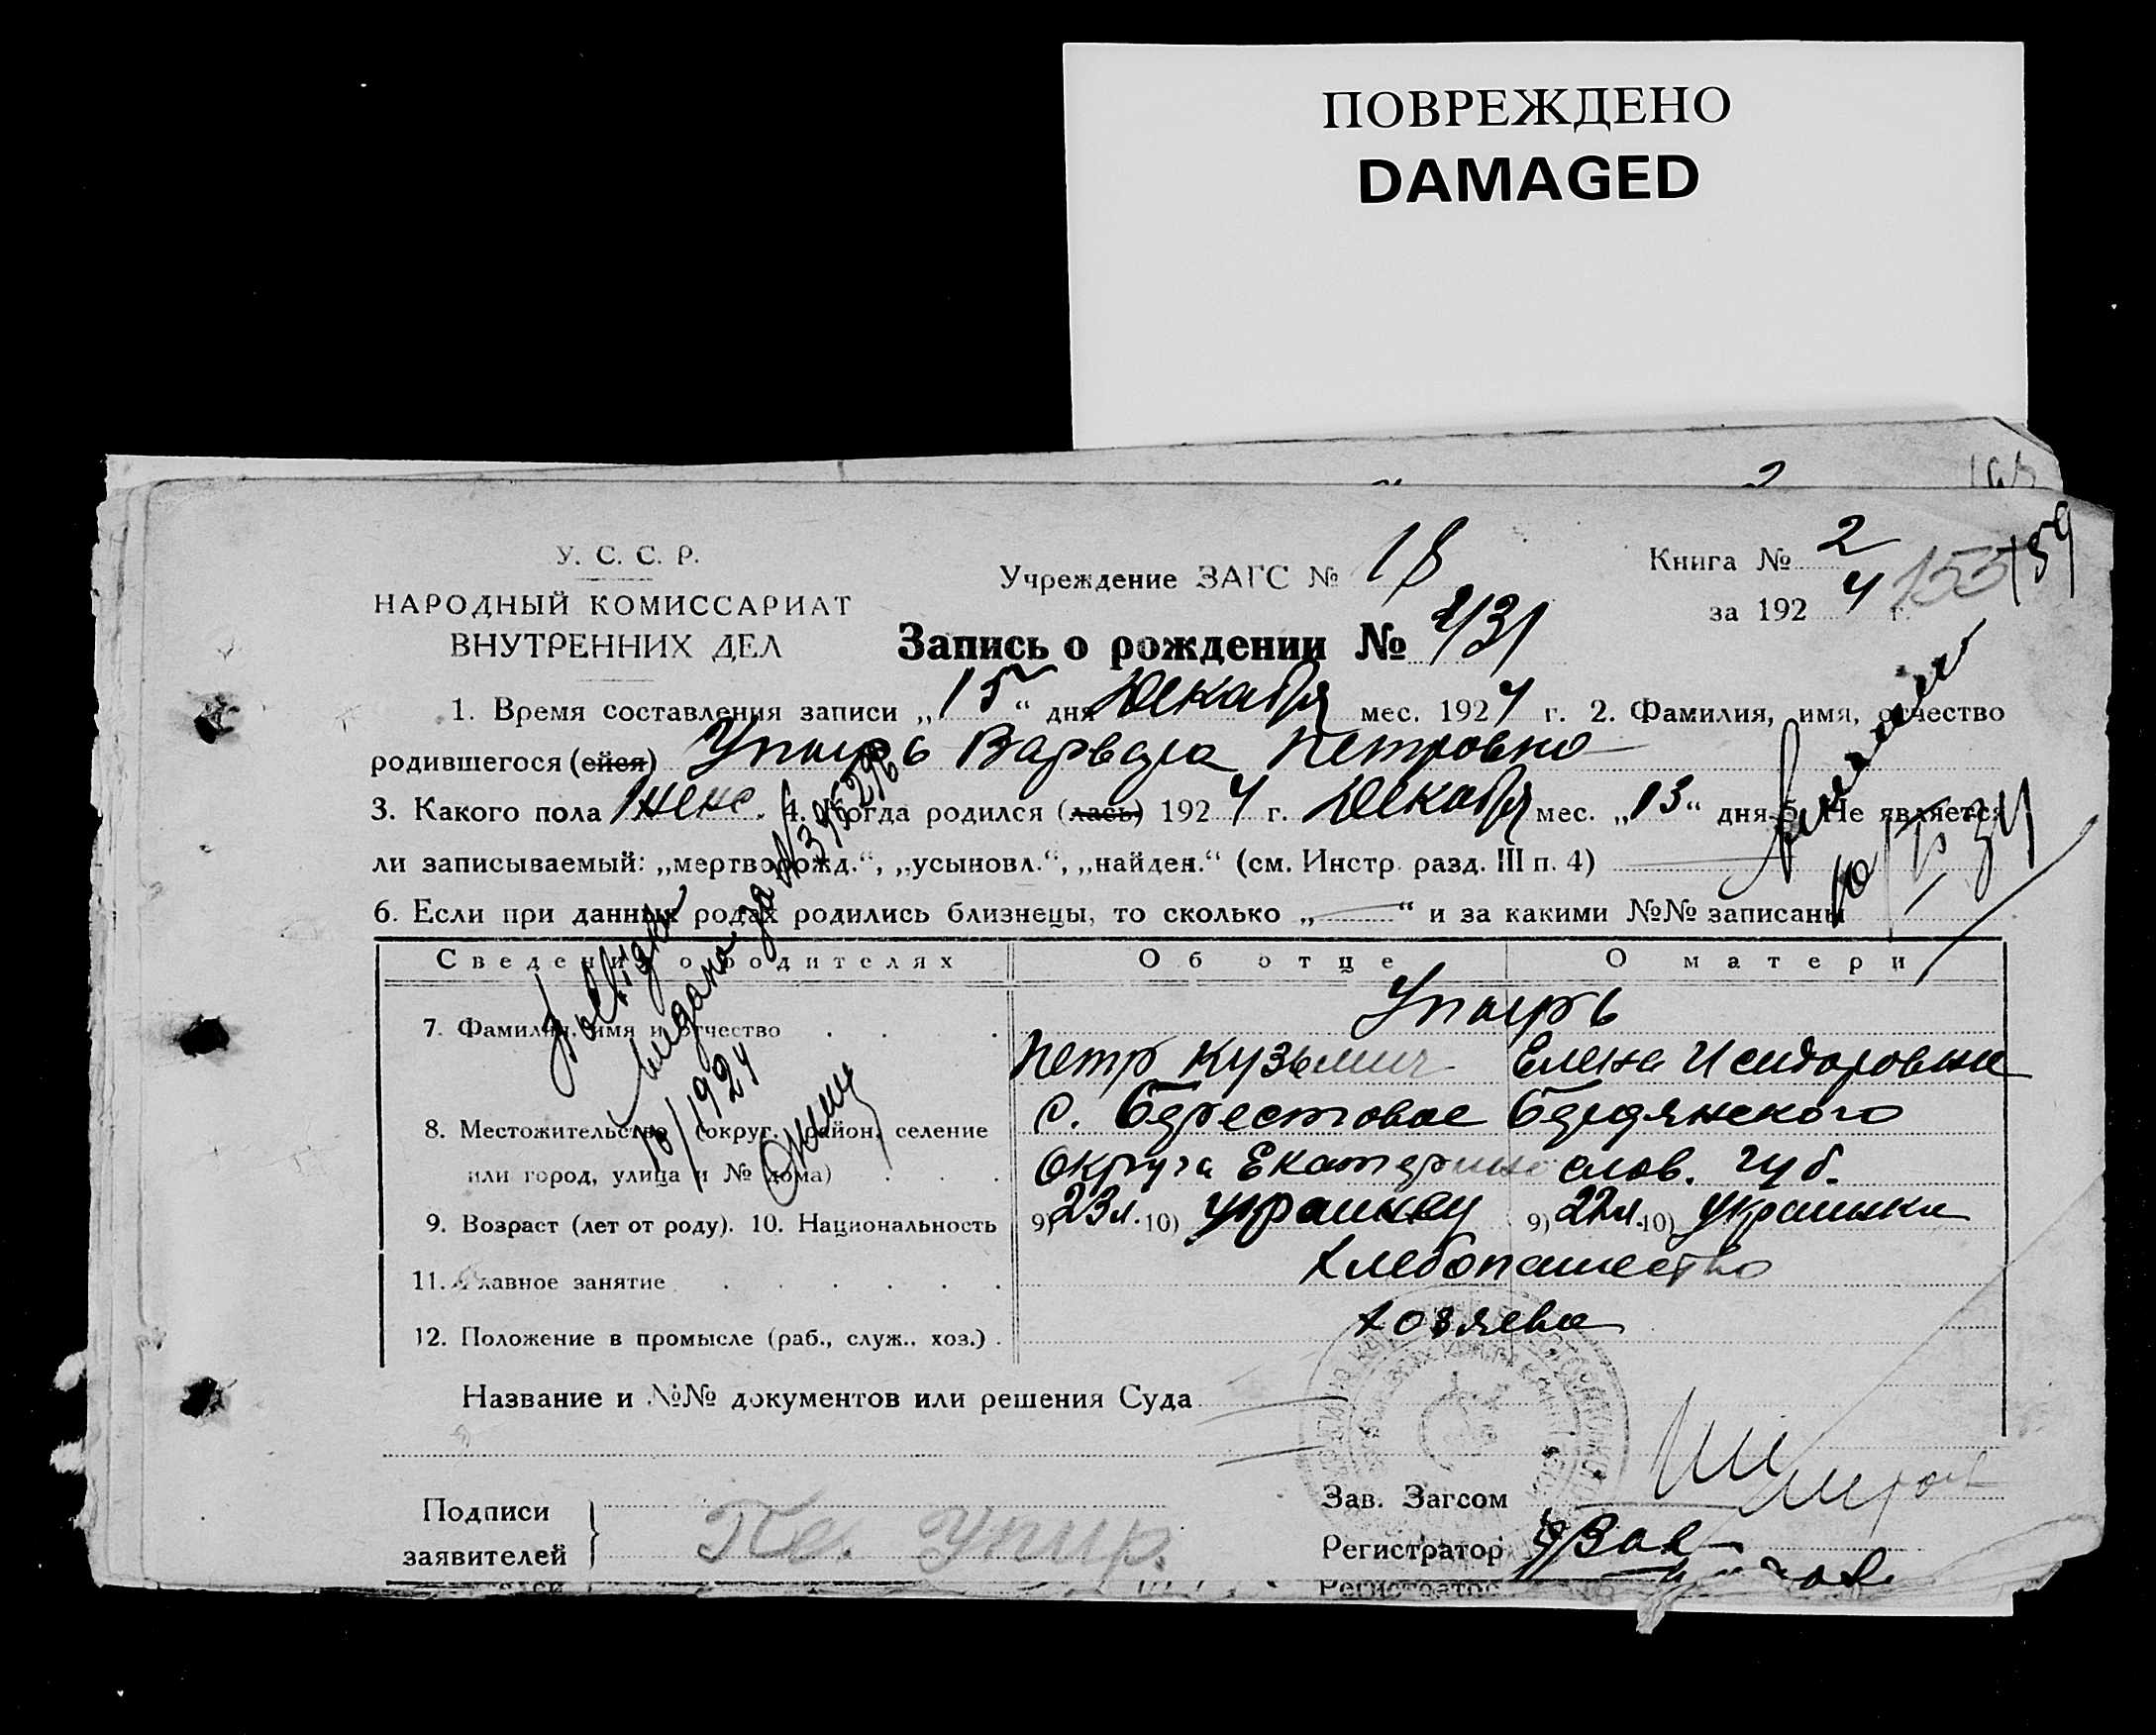 ПОВРЕЖДЕНО
DAMAGED
У. С. С. Р.
НАРОДНЫЙ КОМИССАРИАТ
ВНУТРЕННИХ ДЕЛ
Учреждение ЗАГС № 18
Книга № 2
за 1924 г.
155 159
Запись о рождении № 431
1. Время составления записи „15“ дня Декабря мес. 1924 г. 2. Фамилия, имя, отчество
родившегося (ейся) Упырь Варвара Петровна
3. Какого пола женс. 4. Когда родился (лась) 1924 г. Декабря мес. „13“ дня 5. Не является
ли записываемый: „мертворожд.“, „усыновл.“, „найден.“ (см. Инстр. разд. III п. 4)
6. Если при данных родах родились близнецы, то сколько „—“ и за какими №№ записаны
Сведения о родителях Об отце О матери
7. Фамилия, имя и отчество Упырь
Петр Кузьмич Елена Исидоровна
8. Местожительство (округ, район, селение с. Берестовое Бердянского
или город, улица и № дома) Округа Екатеринослов. губ.
9. Возраст (лет от роду). 10. Национальность 9) 23 л. 10) украинец 9) 22 л. 10) Украинка
11. Главное занятие Хлебопашество
12. Положение в промысле (раб., служ., хоз.) хозяева
Название и №№ документов или решения Суда
Подписи
заявителей
Пе. Упир.
Зав. Загсом
Регистратор
Регистратор